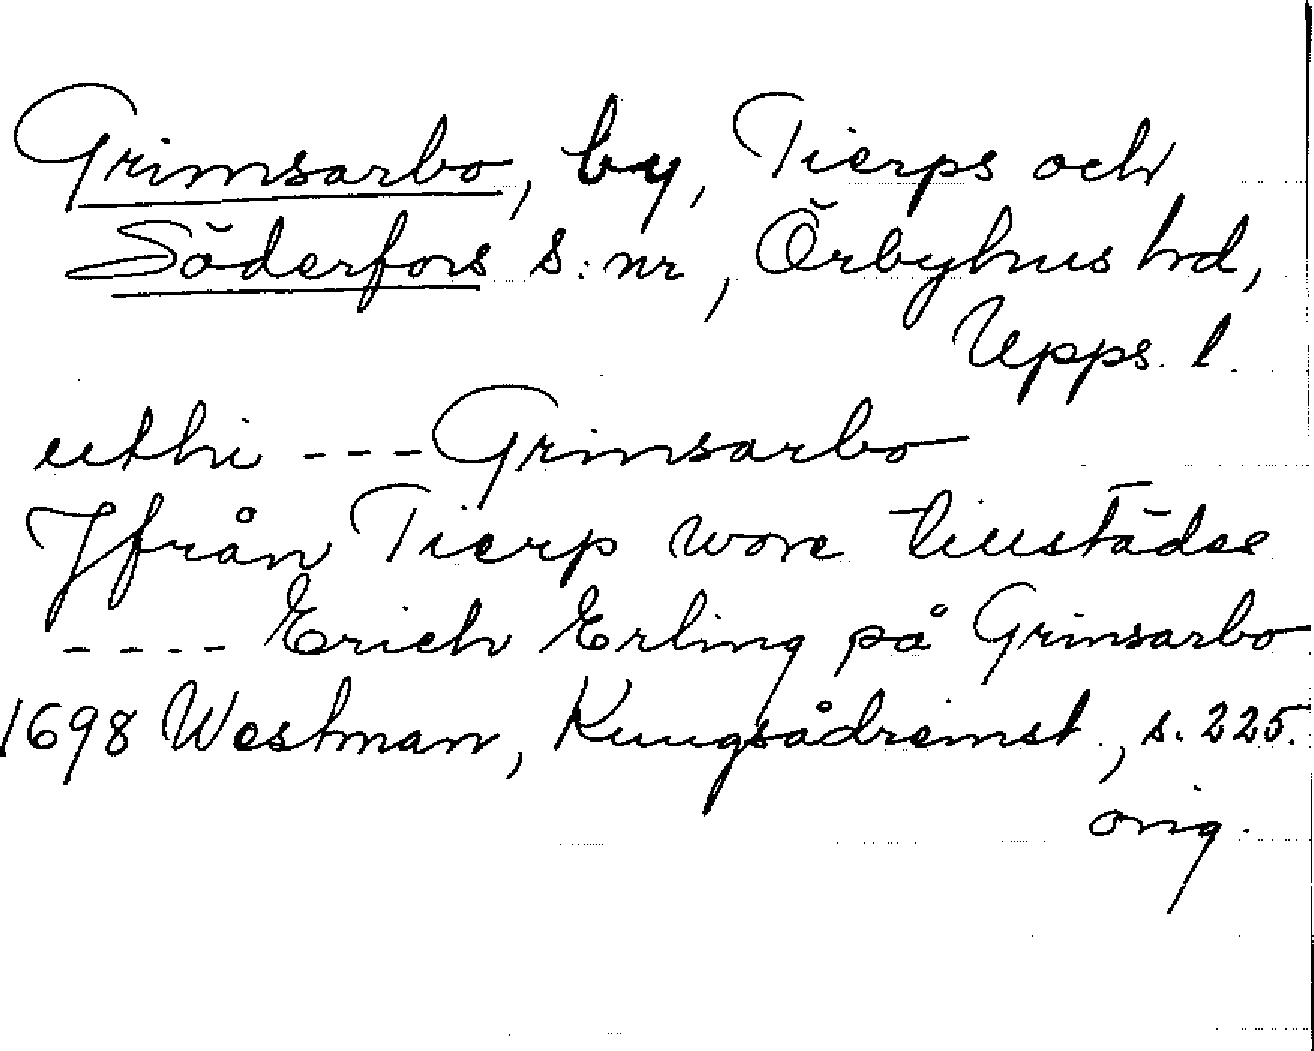 Grimsarbo, by, Tierps och
Söderfors s:nr, Örbyhus hd,
Upps. l.
uthi --- Grimsarbo
Jfrån Tierp wore tillstädse
---- Erich Erling på Grimsarbo
1698 Westman, Kungsådreinst., s. 225.
orig.